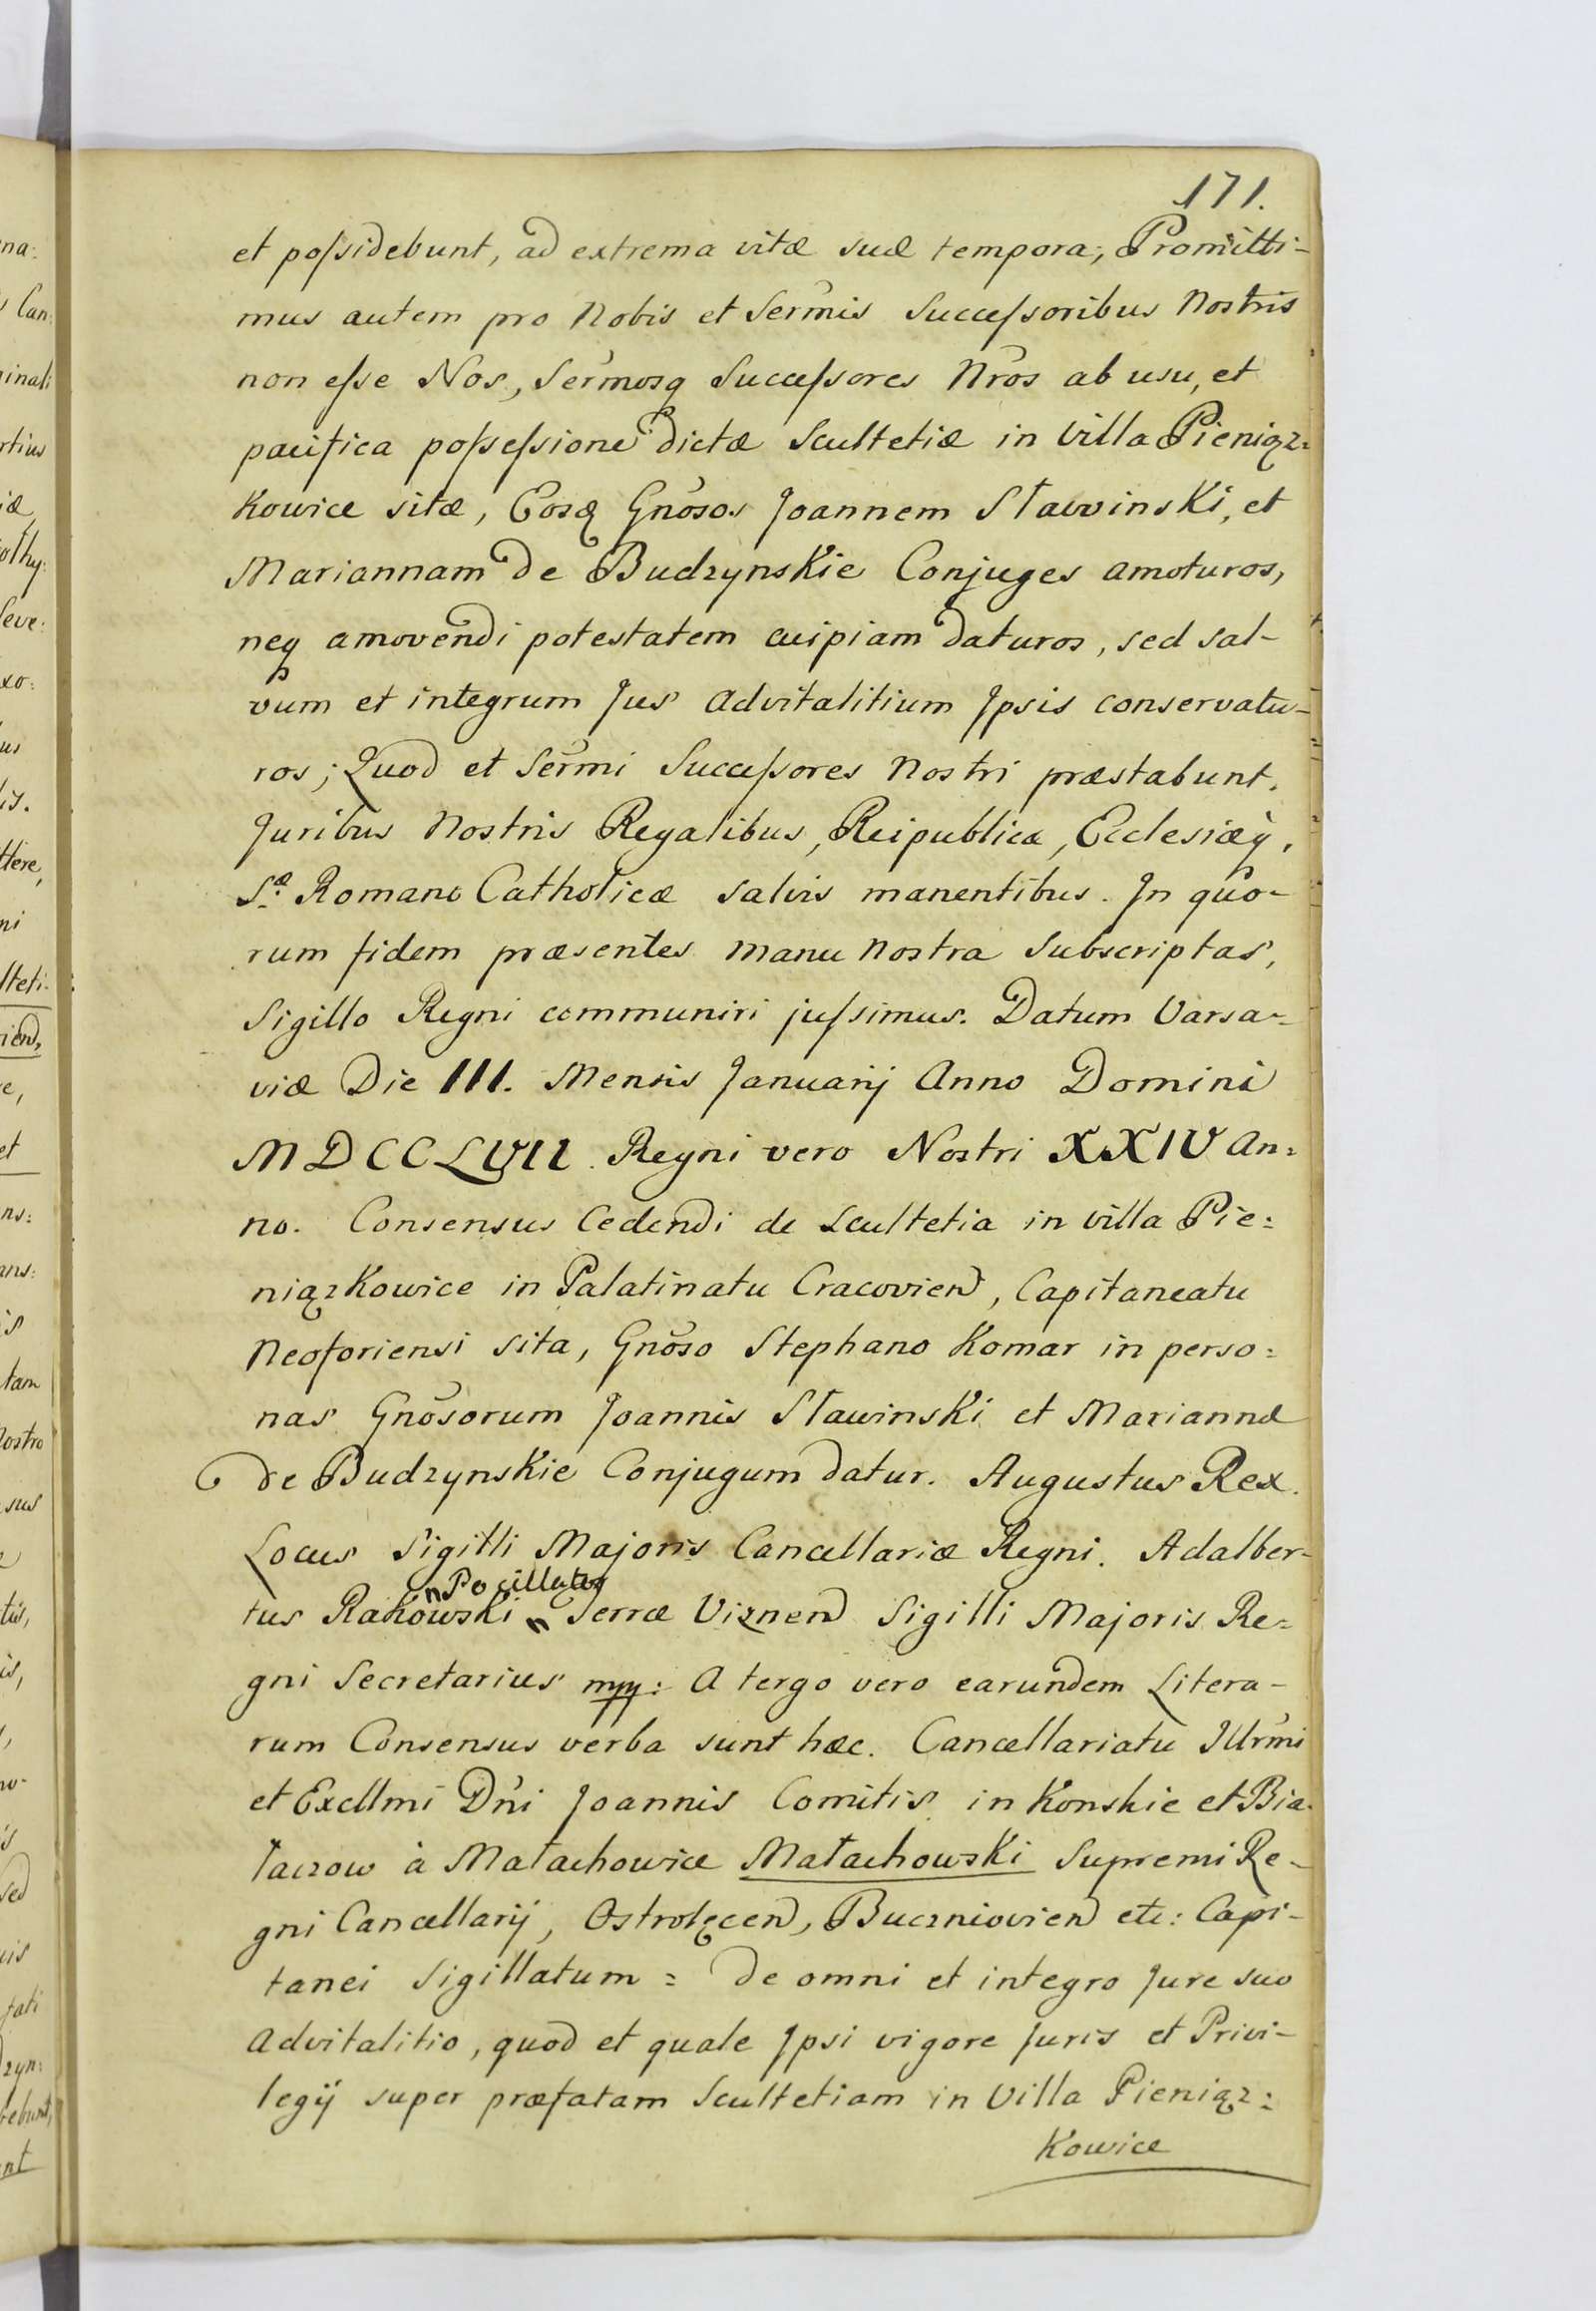 171.
et poſsidebunt, ad extrema vitæ suæ tempora; Promitti-
mus autem pro Nobis et Serm̃is Succeſsoribus Nostris
non eſse Nos, Serm̃osq Succeſsores Nr̃os ab usu, et
pacifica poſseſsione dictæ Scultetiæ in Villa Pieniąz=
Kowice sitæ, Eosq Gnõsos Joannem Sławinski, et
Mariannam de Budzynskie Conjuges amoturos,
neq amovendi potestatem cuipiam daturos, sed sal-
vum et integrum Jus Advitalitium Jpsis conservatu-
ros; Quod et Serm̃i Succeſsores Nostri præstabunt.
Juribus Nostris Regalibus, Reipublicæ, Ecclesiæq,
S.æ Romano Catholicæ salvis manentibus. Jn quo-
rum fidem præsentes manu Nostra Subscriptas,
Sigillo Regni communiri juſsimus. Datum Varsa-
viæ Die III. Mensis Januarij Anno Domini
MDCCLVII. Regni vero Nostri XXIV An=
no. Consensus Cedendi de Scultetia in Villa Pie=
niązKowice in Palatinatu Cracovien, Capitaneatu
Neoforiensi sita, Gnõso Stephano Komar in perso=
nas Gnõsorum Joannis Sławinski et Mariannæ
de Budzynskie Conjugum datur. Augustus Rex.
Locus Sigilli Majoris Cancellariæ Regni. Adalber-
Pocillator
tus Rakowski Terræ Viznen Sigilli Majoris Re=
gni Secretarius mpp: A tergo vero earundem Litera-
rum Consensus verba sunt hæc. Cancellariatu Jllr̃mi
et Excllmi Dñi Joannis Comitis in Konskie et Bia-
łaczow à Małachowice Małachowski Supremi Re-
gni Cancellarij, Ostrołęcen, Buczniovien etc: Capi-
tanei Sigillatum = de omni et integro Jure suo
Advitalitio, quod et quale Jpsi vigore Juris et Privi-
legij super præfatam Scultetiam in Villa Pieniąz=
Kowice